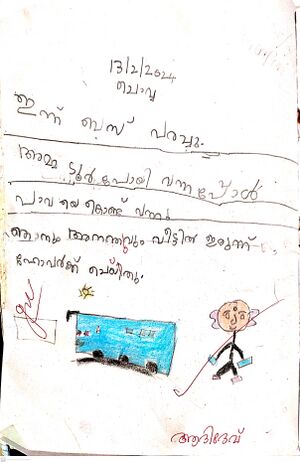 13/2/2024
ചൊവ്വ
ഇന്ന് ബസ് പരച്ചു.
അമ്മ ടൂർ പോയി വന്നപ്പോൾ
പാവ യെ കൊണ്ട് വന്നു
ഞാനും അനന്തുവും വീട്ടിൽ ഇരുന്ന്
ഹോംവർക്ക് ചെയ്തു.
ആദിദേവ്